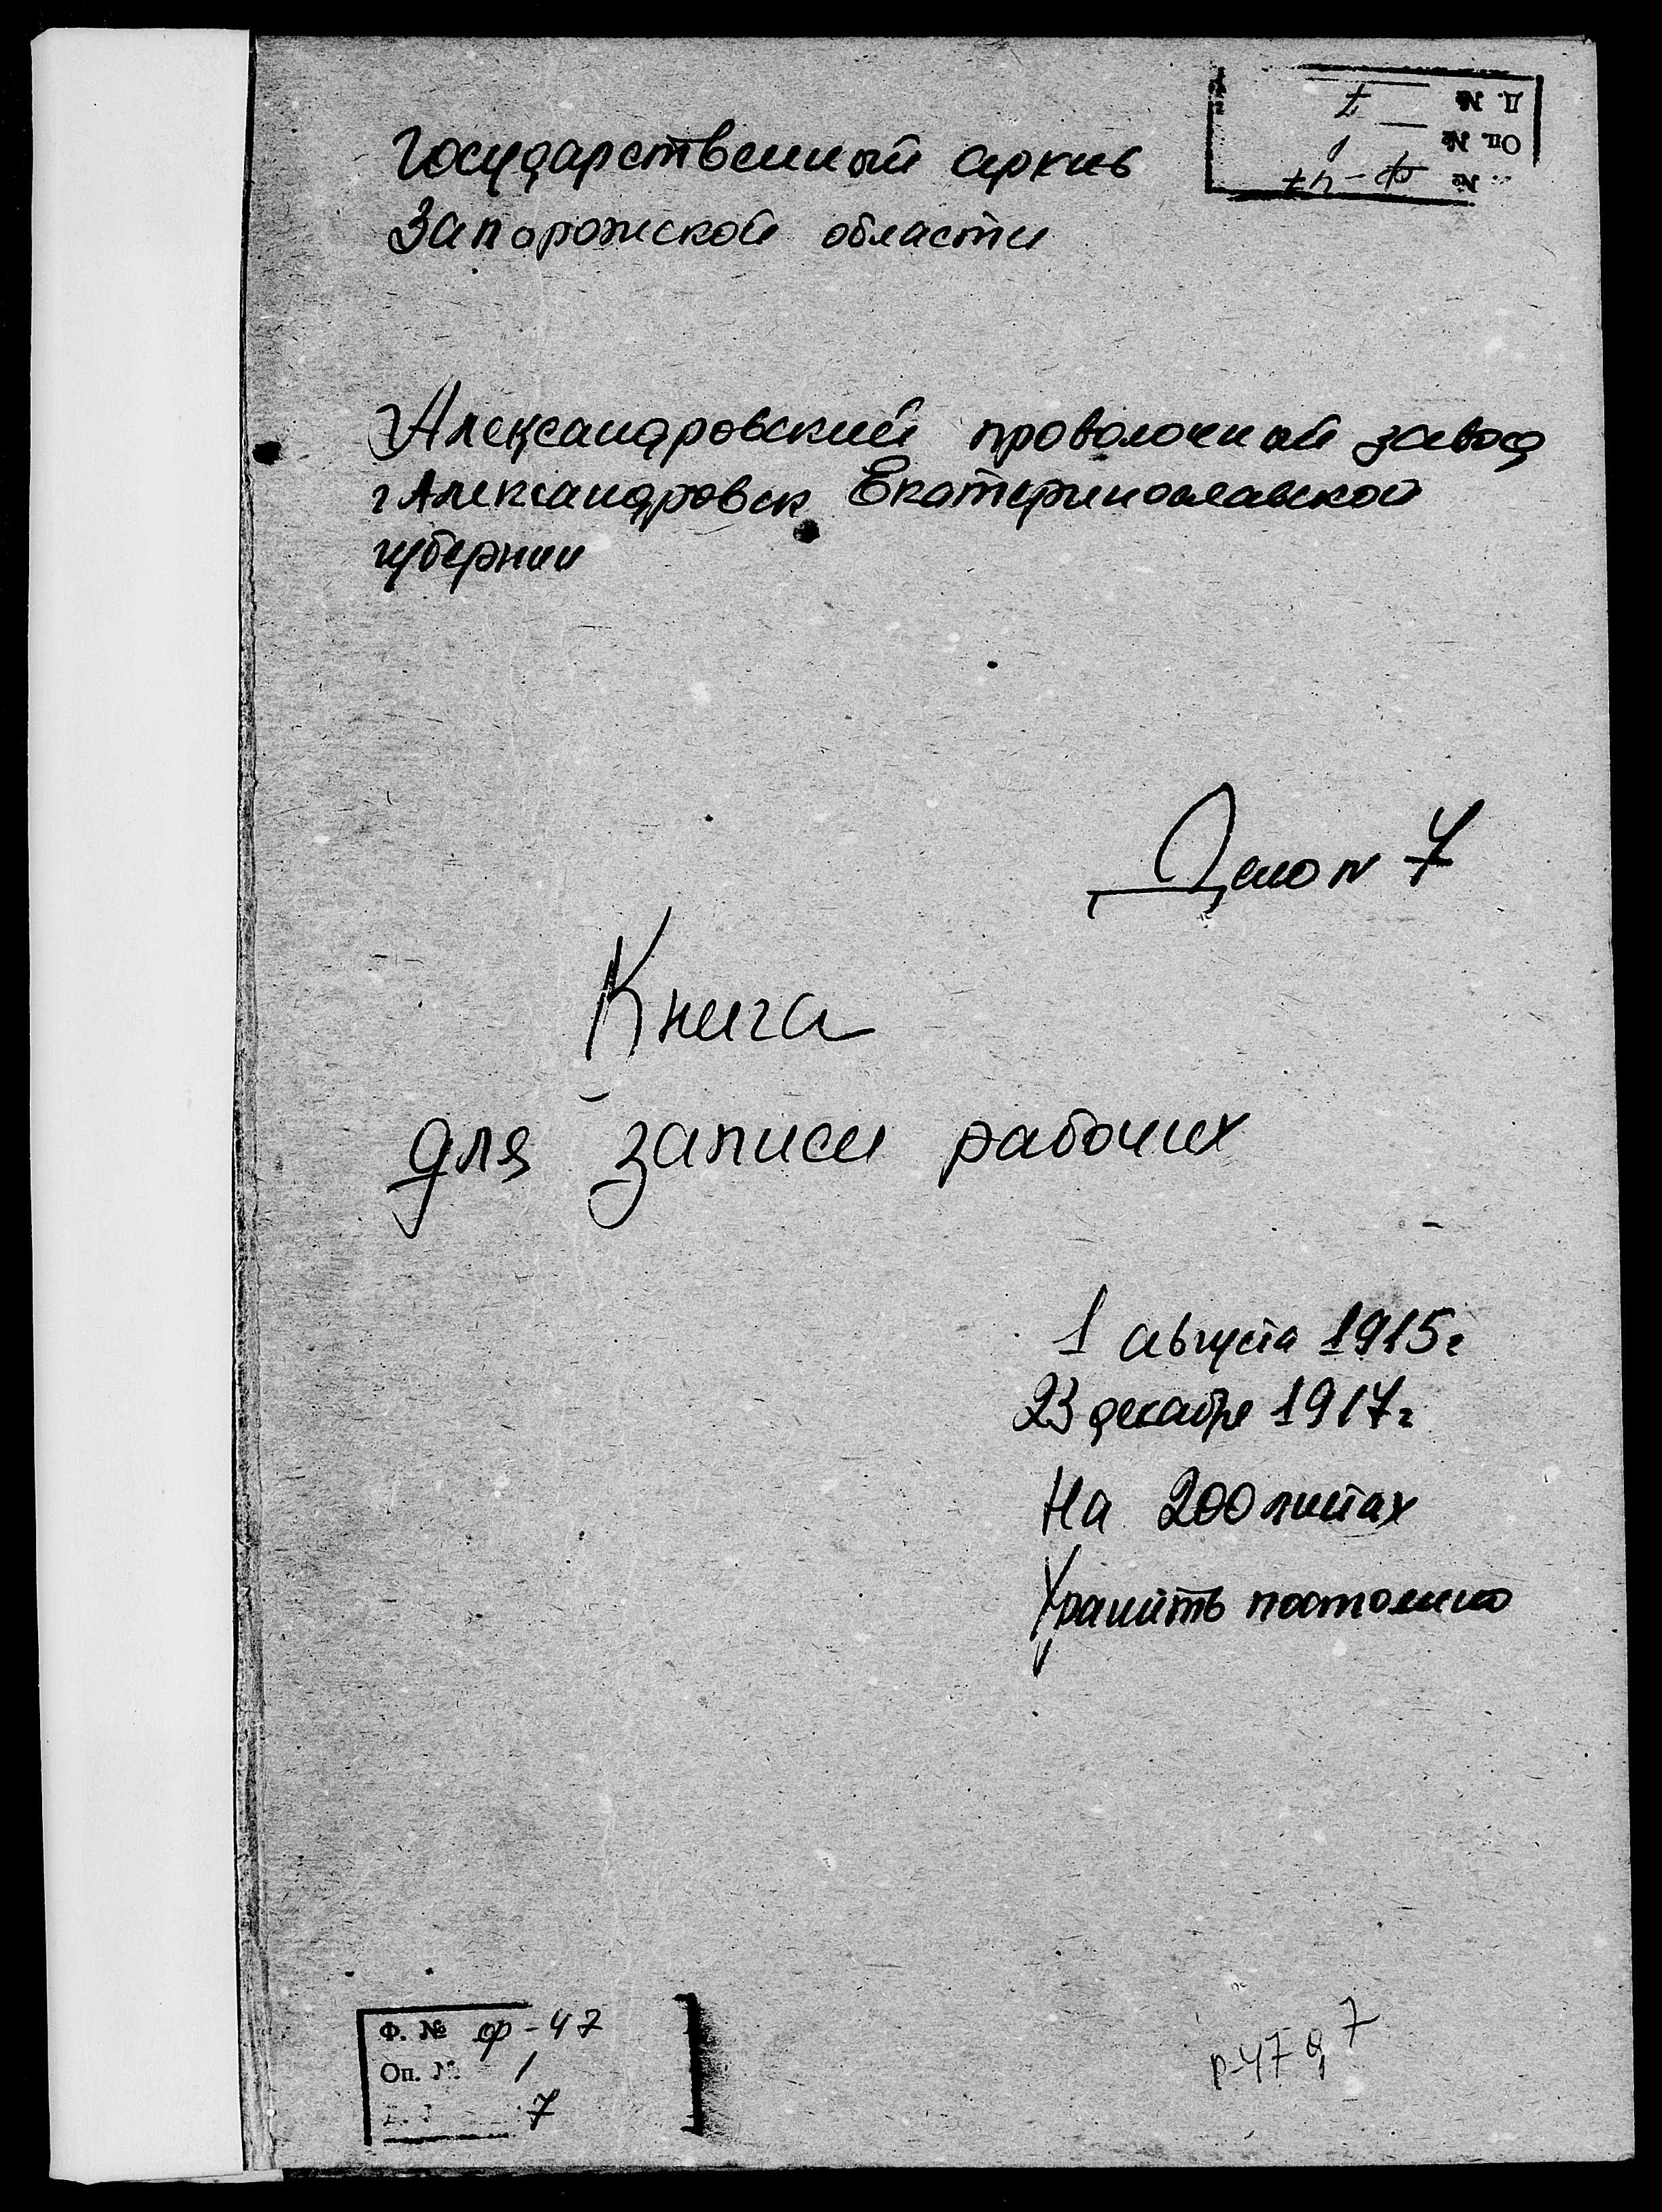 Д. № 7
Оп. № 1
№ Ф-47
Государственный архив
Запорожской области
Александровский проволочный завод
г Александровск Екатеринославской
губернии
Дело N 7
Книга
для записи рабочих
1 августа 1915 г
23 декабря 1917 г
На 200 листах
Хранить постоянно
Ф. № ф-47
Оп. № 1
7
р-47 д 7